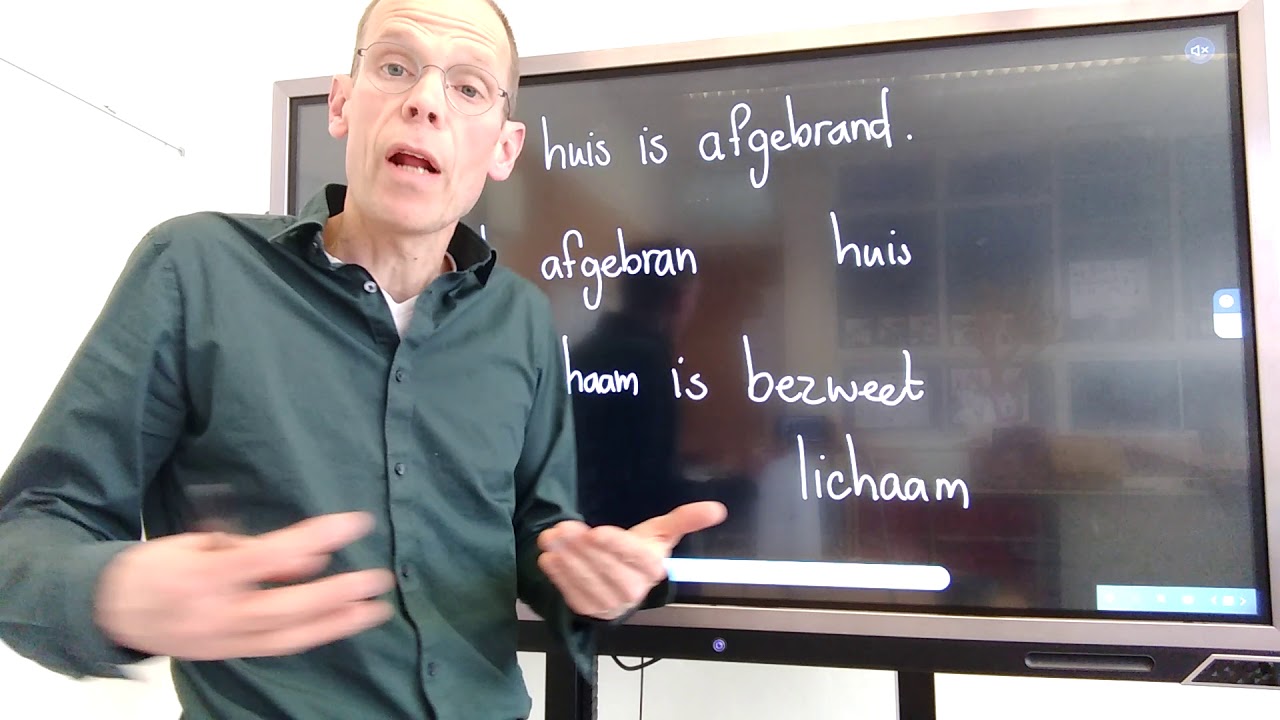 huis is afgebrand.
afgebran huis
haam is bezweet
lichaam